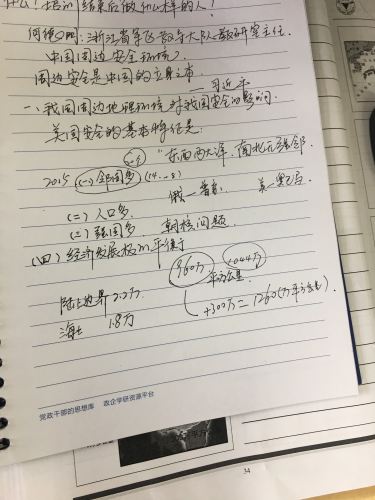 什么！培训结束后做什么样的人！
何德四：浙江省军飞教导大队教研室主任.
中国周边安全环境
周边安全是中国的立身之本
——习近平
一、我国周边地理环境对我国安全的影响.
美国安全的基本特征是:
"东西两大洋、南北无强邻.
2015 (一) 邻国多 (14 8)
俄—普京 美—
(二) 人口多
(三) 强国多 朝核问题
(四) 经济发展极不平衡
960万 +04.4万
平方公里
陆上边界 2.2万
+300万 = 1260(万平方公里)
海 1.8万
党政干部的思想库 政企学研资源平台
34